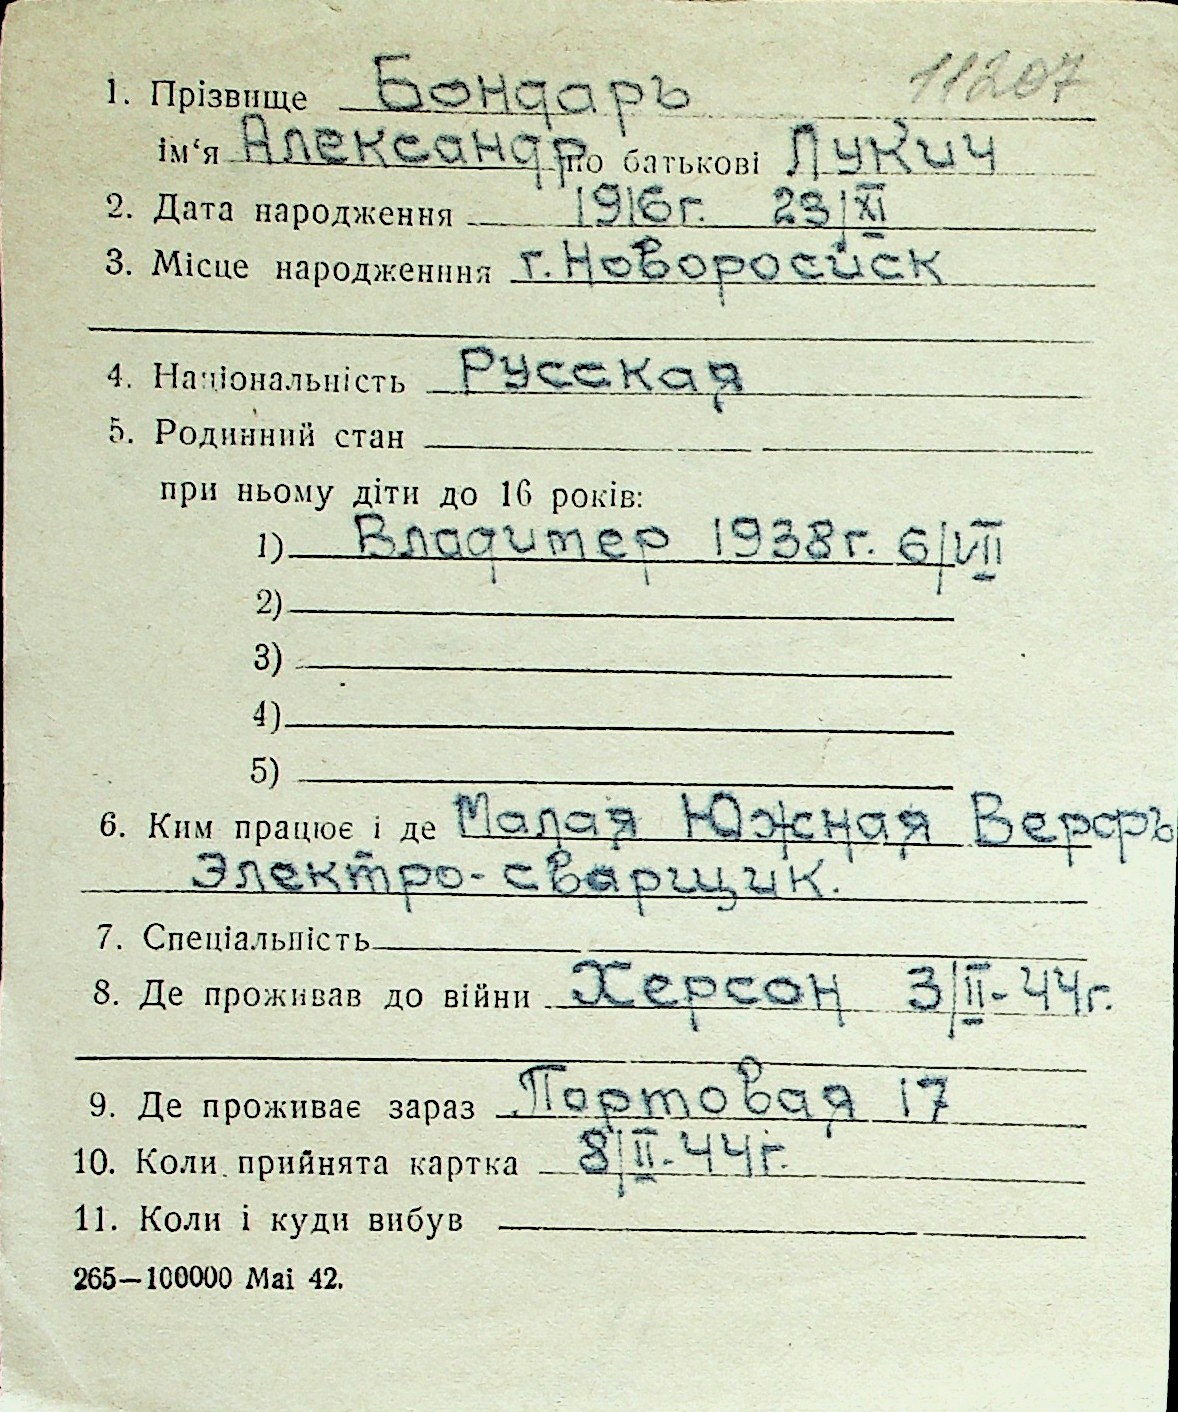 11207
1. Прізвище Бондаръ
ім‘я Александр по батькові Лукич
2. Дата народження 1916г. 23/XI
3. Місце народженння г. Новоросийск
4. Національність Русская
5. Родинний стан
при ньому діти до 16 років:
1) Владимер 1938г. 6/VII
2)
3)
4)
5)
6. Ким працює і де Малая Южная Верфъ
Электро-сварщик.
7. Спеціальність
8. Де проживав до війни Херсон 3/II-44г.
9. Де проживає зараз Портовая 17
10. Коли прийнята картка 8/II-44г.
11. Коли і куди вибув
265—100000 Mai 42.